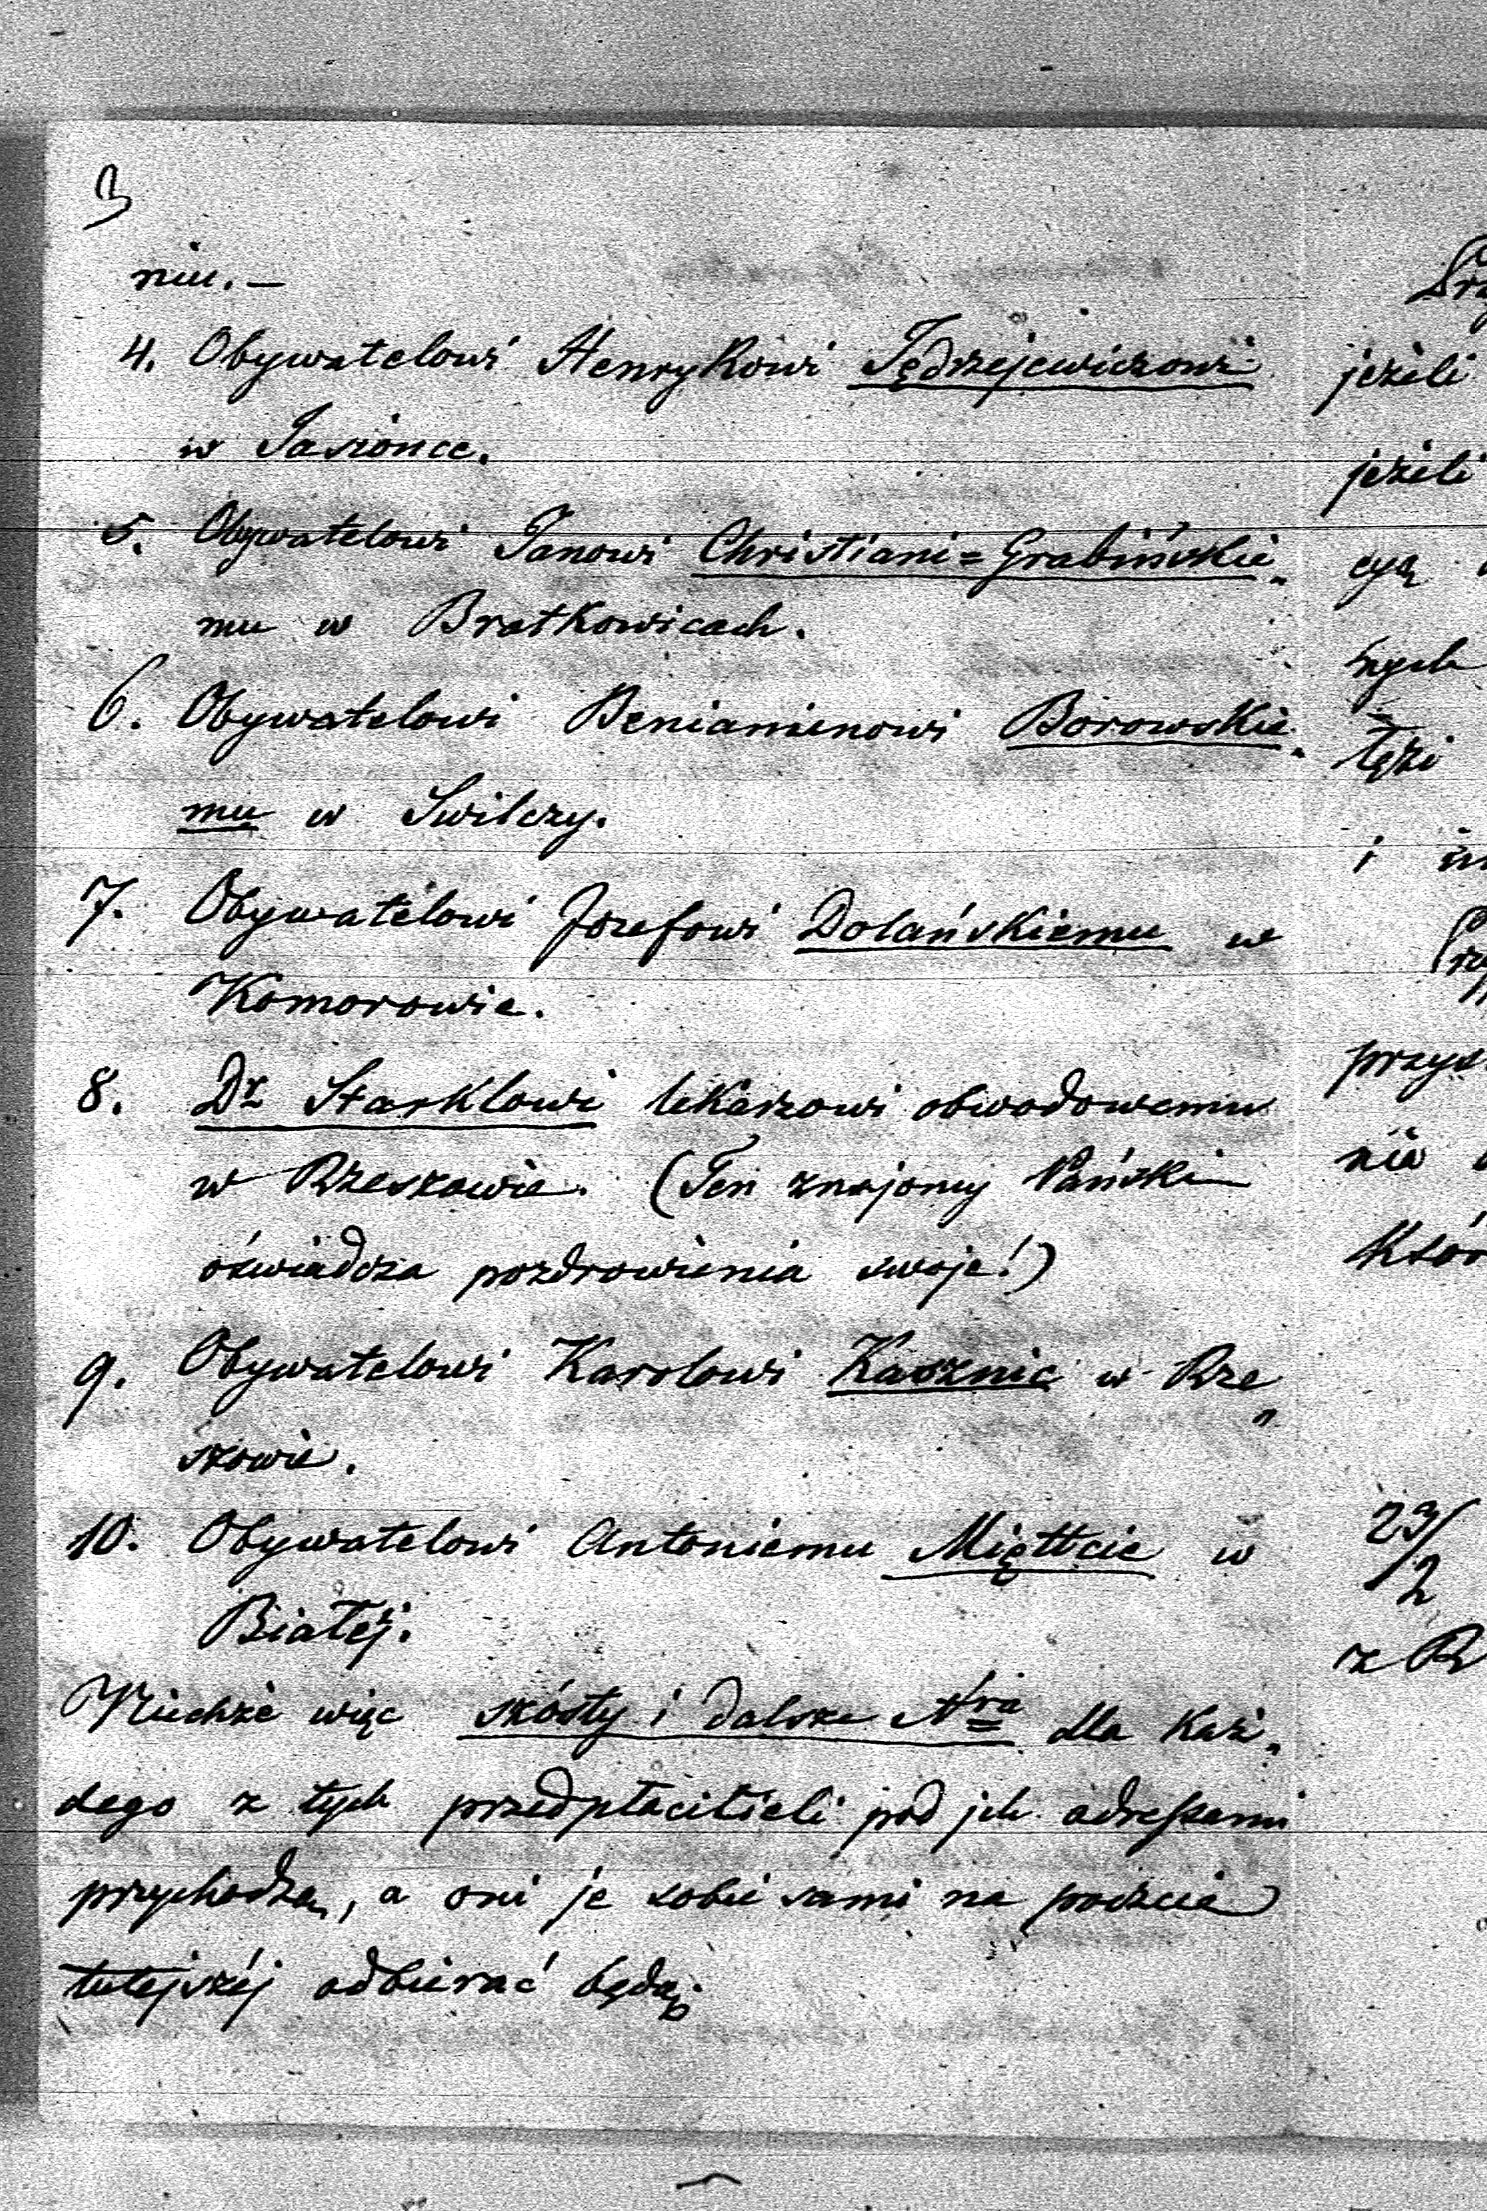 3
niu. –
4. Obywatelowi Henrykowi Jędrzejewiczowi
w Jasionce.
5. Obywatelowi Janowi Christiani=Grabińskie„
mu w Bratkowicach.
6. Obywatelowi Beniaminowi Borowskie„
mu w Swilczy.
7. Obywatelowi Józefowi Dolańskiemu w
Komorowie.
8. Dr Starklowi lekarzowi obwodowemu
w Rzeszowie. (Ten znajomy Pański
oświadcza pozdrowienia swoje!)
9. Obywatelowi Karolowi Kasznic w Rze„
szowie.
10. Obywatelowi Antoniemu Miętłcie w
Białéj.
Niechże więc szósty i dalsze Nra dla każ„
dego z tych przedpłacicieli pod ich adressami
przychodzą, a oni je sobie sami na poczcie
tutejszéj odbierać będą.
jeżeli
jeżeli
cyą
nych
tęzi
i
przys
nie
Któr
23/2
z R